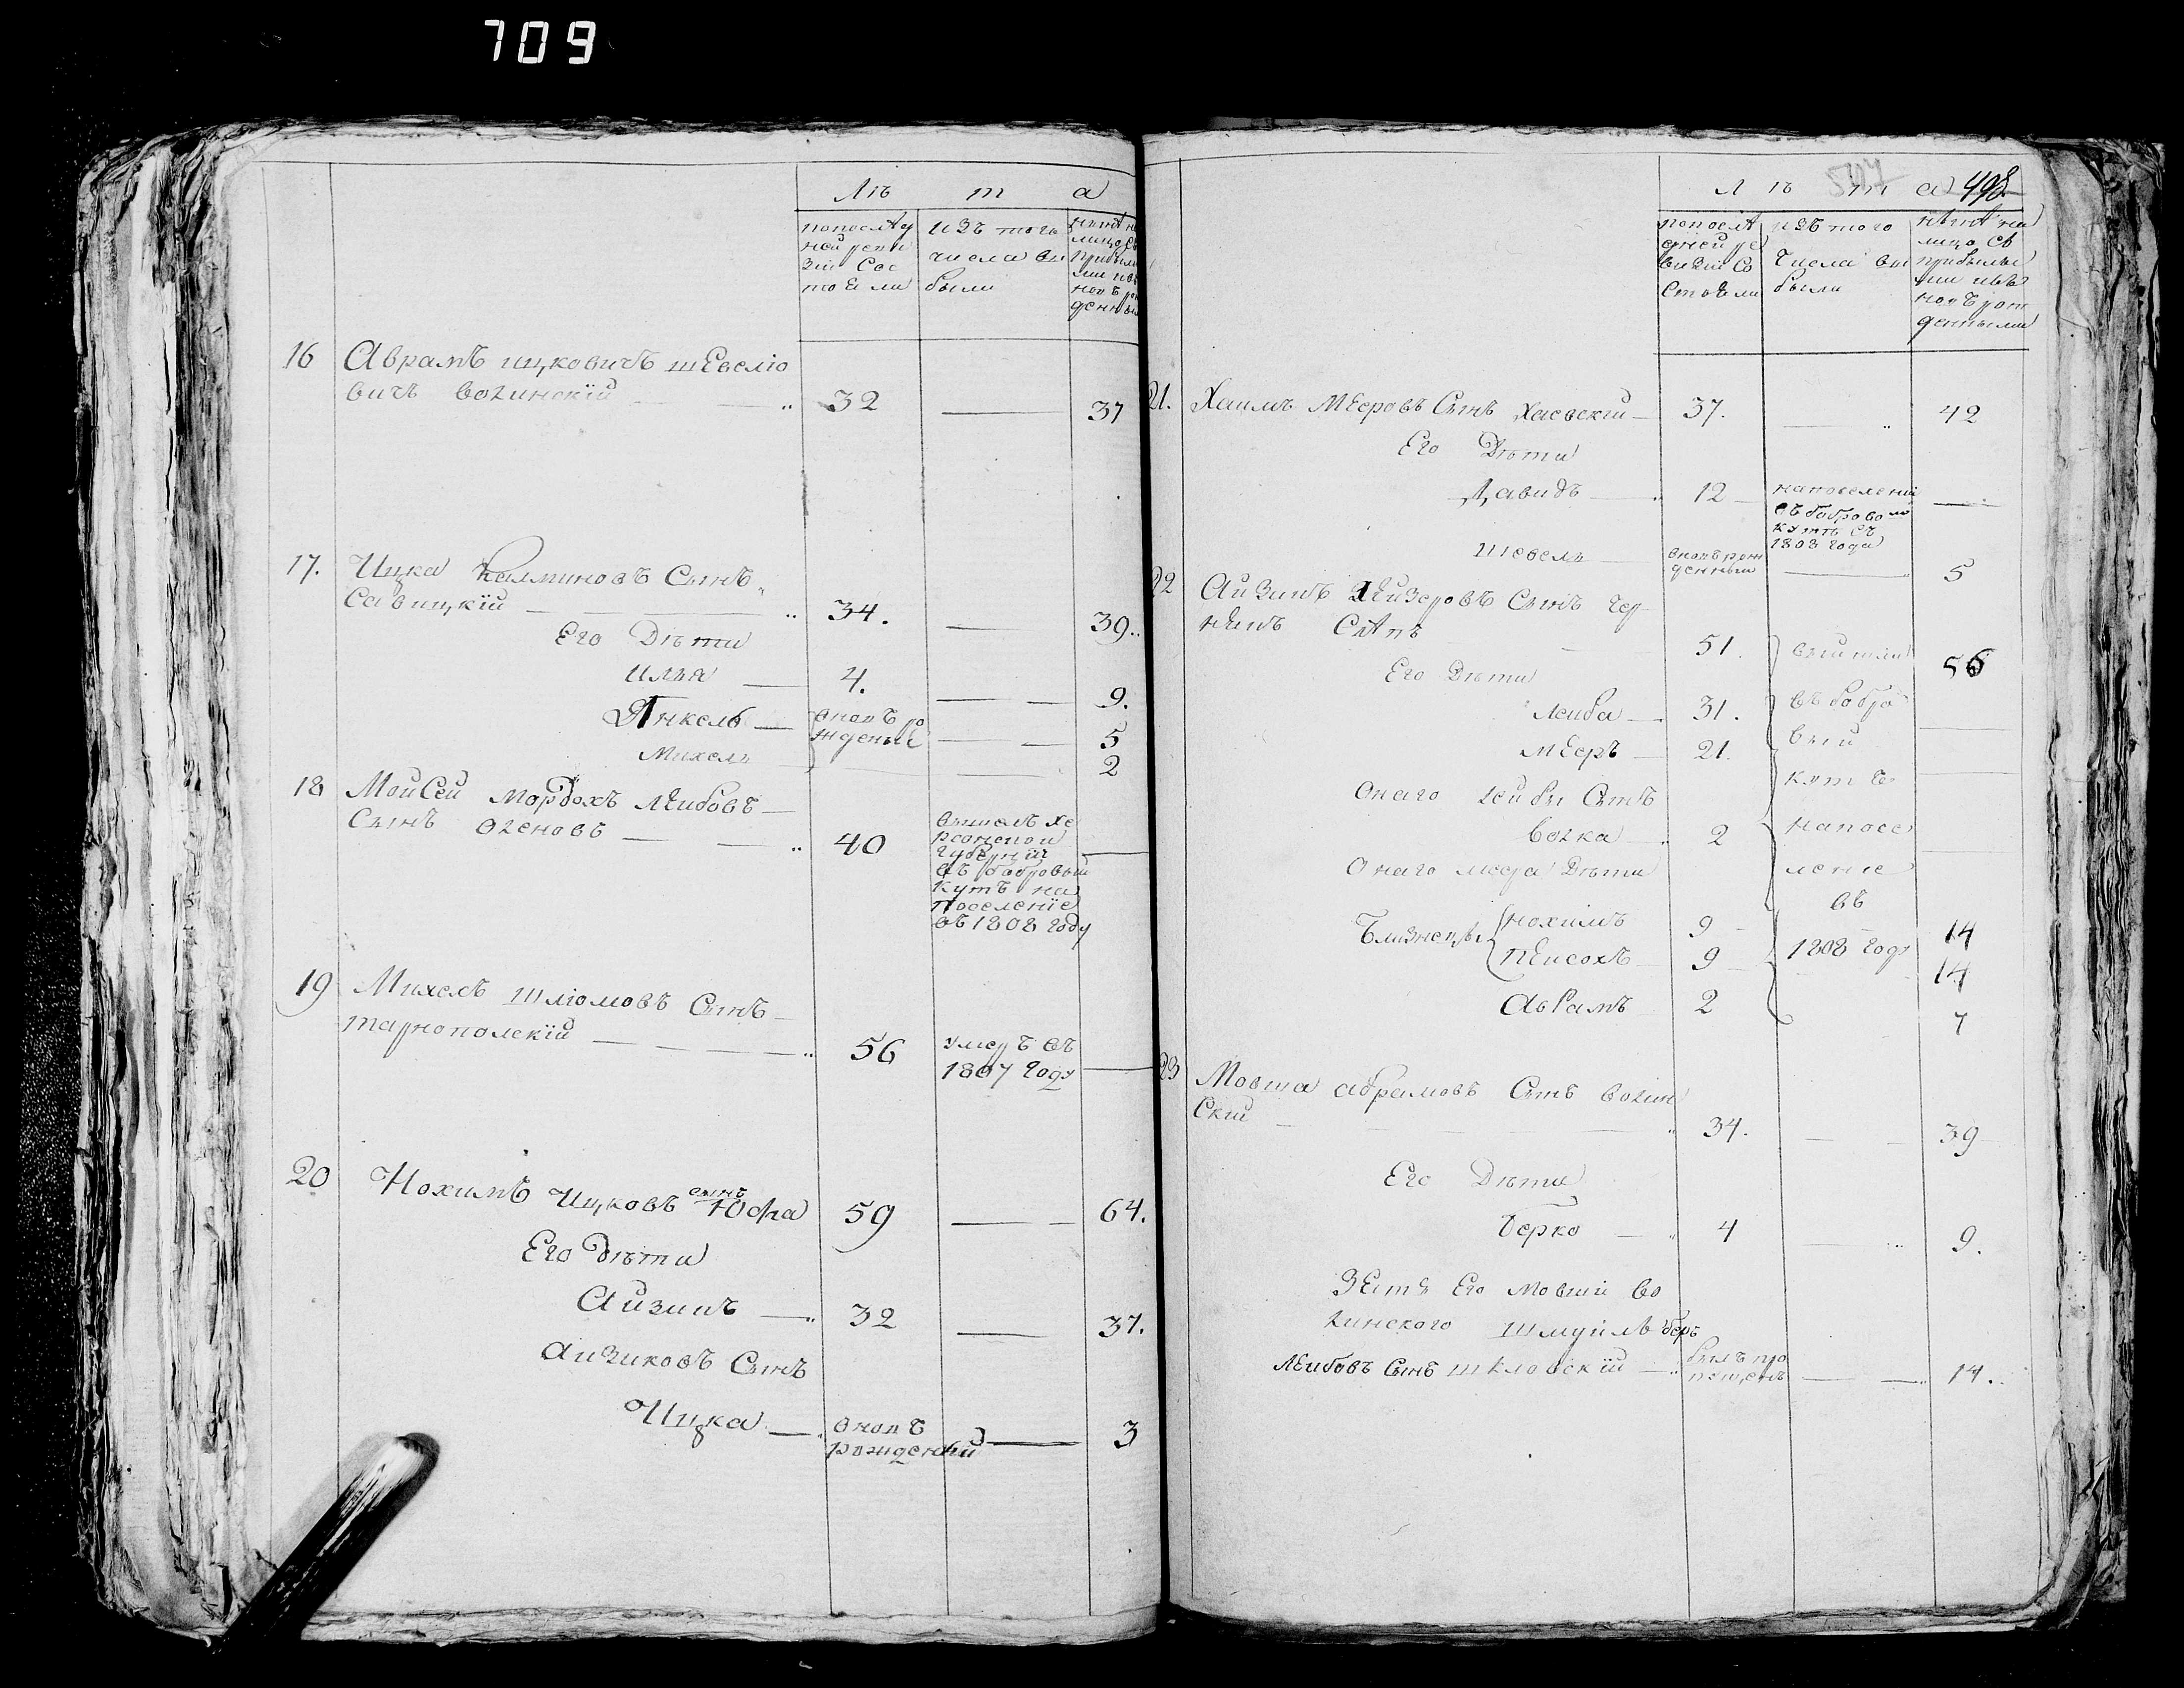 709
Лѣта
попослѣд
ней реви
зіи сос
тояли
изъ того
числа вы
были
нынѣ на
лицо съ
прибылы
ми и въ
новь рож
денны
16 Аврамъ ицковичъ шевелїо
вичъ вогинскїй 32 — 37
17. Ицка калминовъ Сынъ
Савицкїй 34. — 39
Его Дѣти
илья 4. — 9.
Янкель вновь ро — 5
жденые
Михель — 2
18 Мойсей мордохъ лейбовъ
Сынъ огеновъ 40
вышелъ хе
рсонской
губернїи
въ бобровый
кутъ на
поселенїе
въ 1808 году
19 Михель шлїомовъ Сынъ
тарнополскїй 56 умеръ въ
1807 году —
20 Нохимъ Ицковъ сынъ Юфа 59 — 64.
Его дѣти
Айзикъ 32 — 37.
Айзиковъ Сынъ
Ицка вновь — 3
рожденный
507 498
Лѣта
попослѣ
дней ре
визїи со
стояли
изъ того
числа вы
были
нынѣ на
лицо съ
прибылы
ми и въ
новь рож
денными
21. Хаимъ Мееровъ Сынъ Хаевскїй 37. — 42
Его Дѣти
Давидъ 12 напоселенїи —
въ бобровом
кутѣ съ
1808 года
Шевель вновь рож
денный — 5
22 Айзикъ Лейзеровъ Сынъ чер
51. вышли 56
Его Дѣти
Лейба 31. въ бобро —
Мееръ 21. вый —
Онаго лейбы Сынъ кутъ
Волка 2 напосе —
Онаго меера Дѣти ленїе
въ
Близнецы Нохимъ 9 14
Пейсохъ 9 1808 году 14
Аврамъ 2 7
23 Мовша абрамовъ Сынъ вогин
Скїй 34. — 39
Его Дѣти
Берко 4 — 9.
Зеть Его мовши во
гинского шмуйль беръ
Лейбовъ Сынъ шкловскїй былъ про
пущенъ — 14.